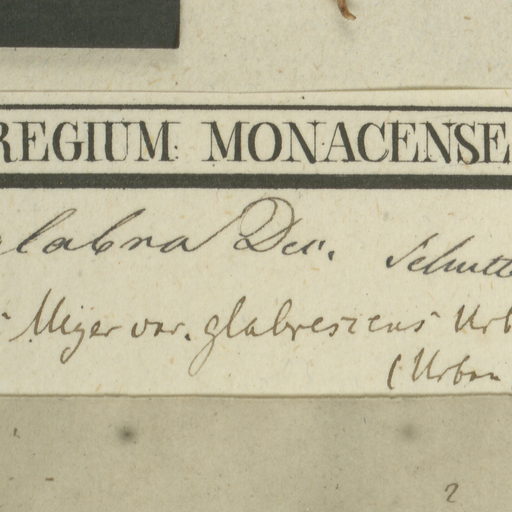 REGIUM MONACENSE
glabra Dec. Schuttl
Meyer var. glabrescens Urb
(Urban
?